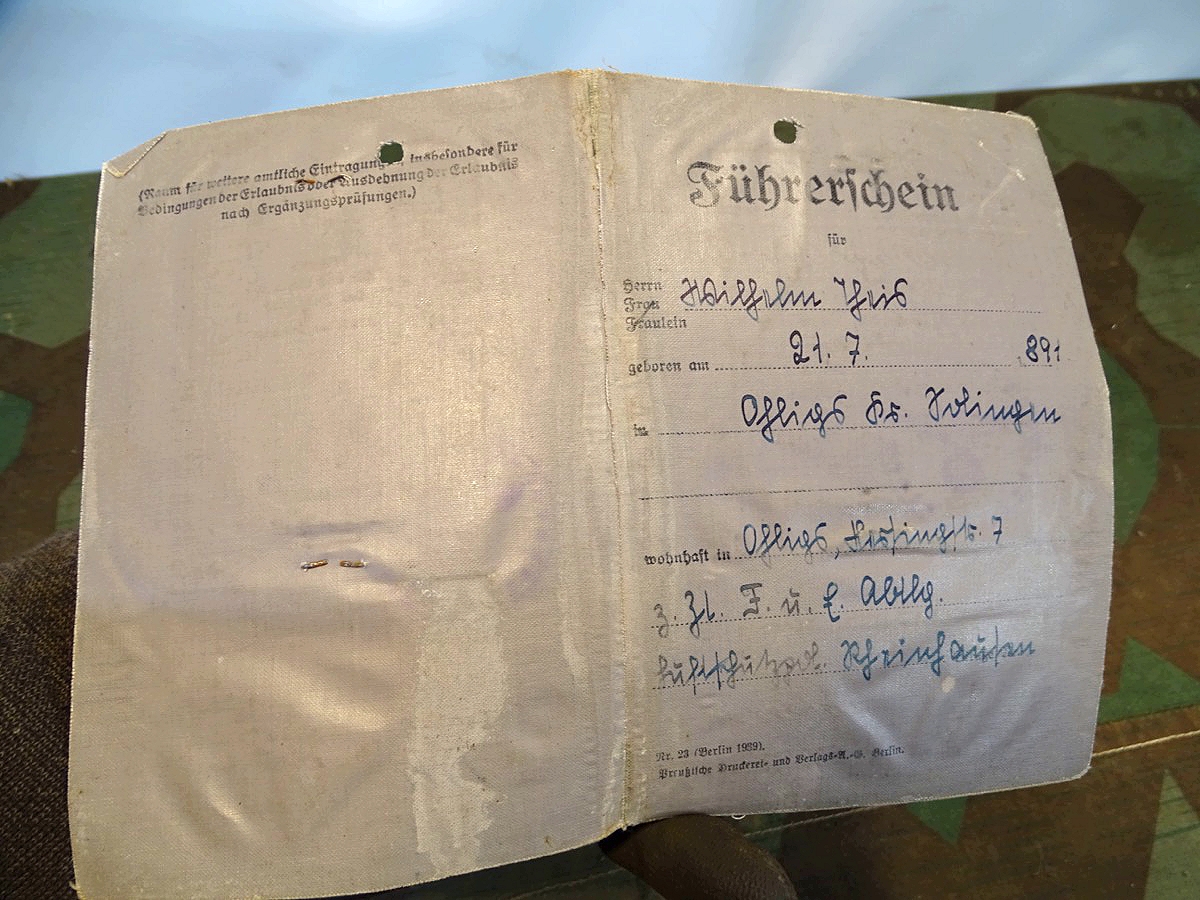 (Raum für weitere amtliche Eintragungen insbesondere für
Bedingungen der Erlaubnis oder Ausdehnung der Erlaubnis
nach Ergänzungsprüfungen.)
Führerschein
für
Herrn
Frau Wilhelm Theis
Fräulein
geboren am 21. 7. 891
in Ohligs Kr. Solingen
wohnhaft in Ohligs, 7
z. Zt. F. u. E. Abtlg.
Luftschutzpol. Rheinhausen
Nr. 23 (Berlin 1939).
Preußische Druckerei- und Verlags-A.-G. Berlin.